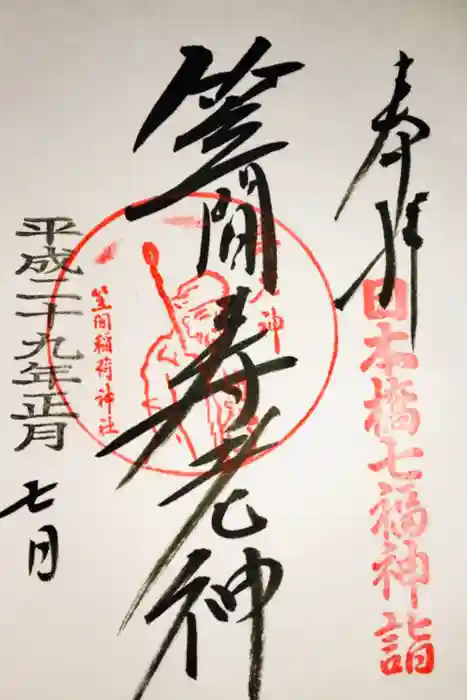 奉拝
日本橋七福神詣
笠間寿老神
笠間稲荷神社
平成二十九年正月
七日